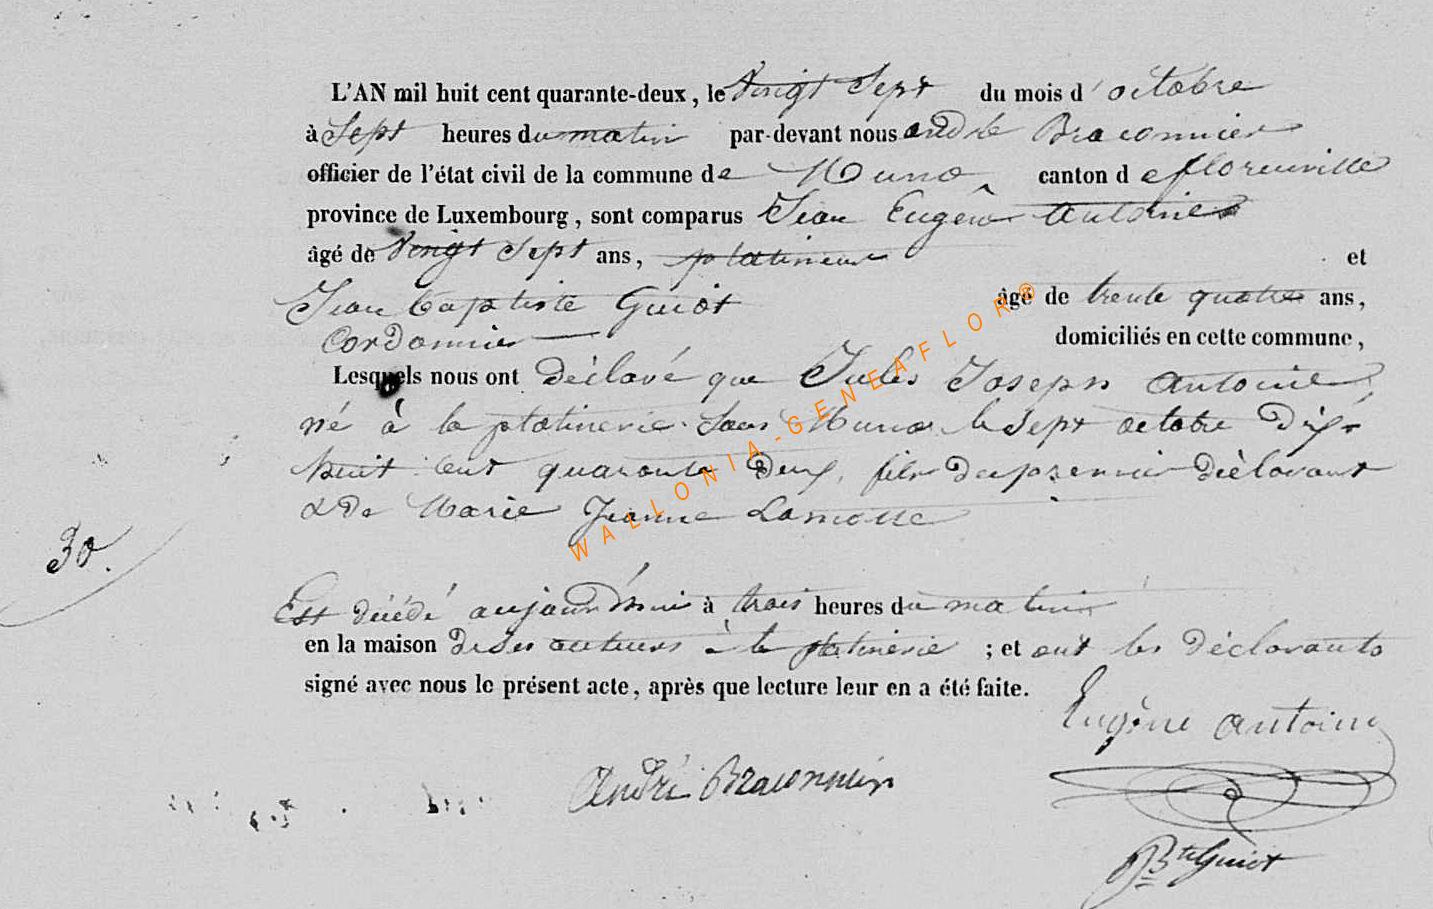 L'AN mil huit cent quarante-deux, le Vingt Sept du mois d'octobre
à Sept heures du matin par-devant nous andré Braconnier
officier de l'état civil de la commune de Muno canton de florenville
province de Luxembourg, sont comparus Jean Eugène Antoine
âgé de Vingt Sept ans, platineur et
Jean baptiste Guiot âgé de trente quatre ans,
Cordonnier domiciliés en cette commune,
Lesquels nous ont déclaré que Jules Joseph Antoine
né à la platinerie sous Muno le Sept octobre Dix
huit cent quarante Deux, fils du premier déclarant
& De Marie Jeanne Lamotte
30.
Est décédé aujourd'hui à trois heures du matin
en la maison de ses auteurs à la platinerie ; et ont les déclarants
signé avec nous le présent acte, après que lecture leur en a été faite.
Eugène Antoine
André Braconnier
JBte Guiot
WALLONIA-GENEAFLOR®